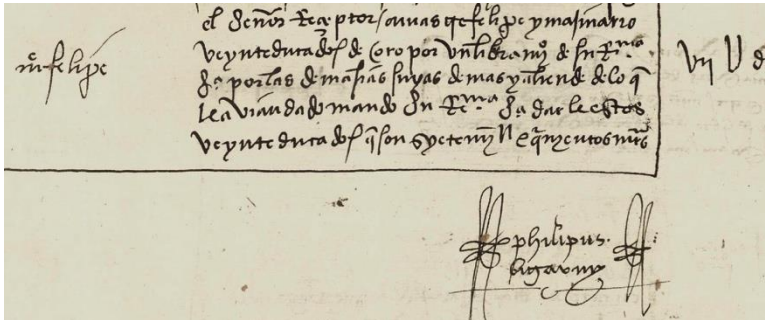 el Señor Receptor / a felipe ymajinario
mre felipe
veynte ducados de oro por vn libramyo de su Rma
vij U d
sa por las demasias suyas de mas y aliende de lo q
le avian dado mando Su Rma sa dar le estos
veynte ducados q son syete mill e qynyentos mrs
philipus
bigarny